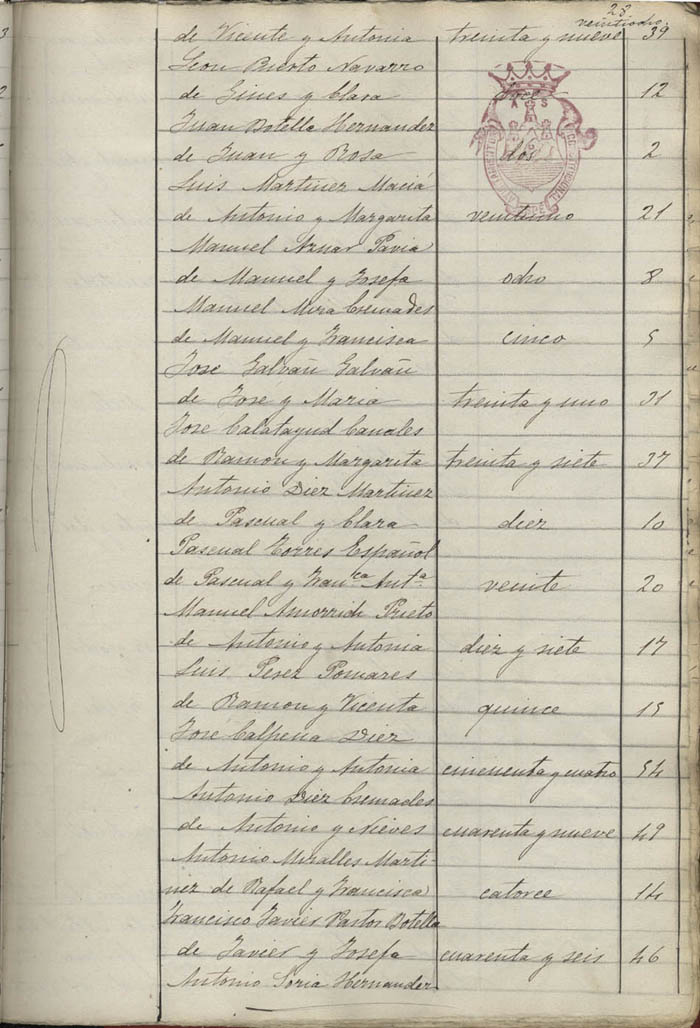 28
veintiocho
de Vicente y Antonia treinta y nueve 39
Leon Bierto Navarro
de Gines y Clara doce 12
Juan Botella Hernandez
de Juan y Rosa dos 2
Luis Martinez Maciá
de Antonio y Margarita veintiuno 21
Manuel Aznar Pavia
de Manuel y Josefa ocho 8
Manuel Mira Cremades
de Manuel y Francisca cinco 5
Jose Galvañ Galvañ
de Jose y Maria treinta y uno 31
Jose Calatayud Canales
de Ramon y Margarita treinta y siete 37
Antonio Diez Martinez
de Pascual y Clara diez 10
Pascual Torres Español
de Pascual y Fran.ca Ant.a veinte 20
Manuel Amorrich Prieto
de Antonio y Antonia diez y siete 17
Luis Perez Pomares
de Ramon y Vicenta quince 15
Jose Calpena Diez
de Antonio y Antonia cincuenta y cuatro 54
Antonio Diez Cremades
de Antonio y Nieves cuarenta y nueve 49
Antonio Miralles Marti-
nez de Rafael y Francisca catorce 14
Francisco Javier Pastor Botella
de Javier y Josefa cuarenta y seis 46
Antonio Soria Hernandez